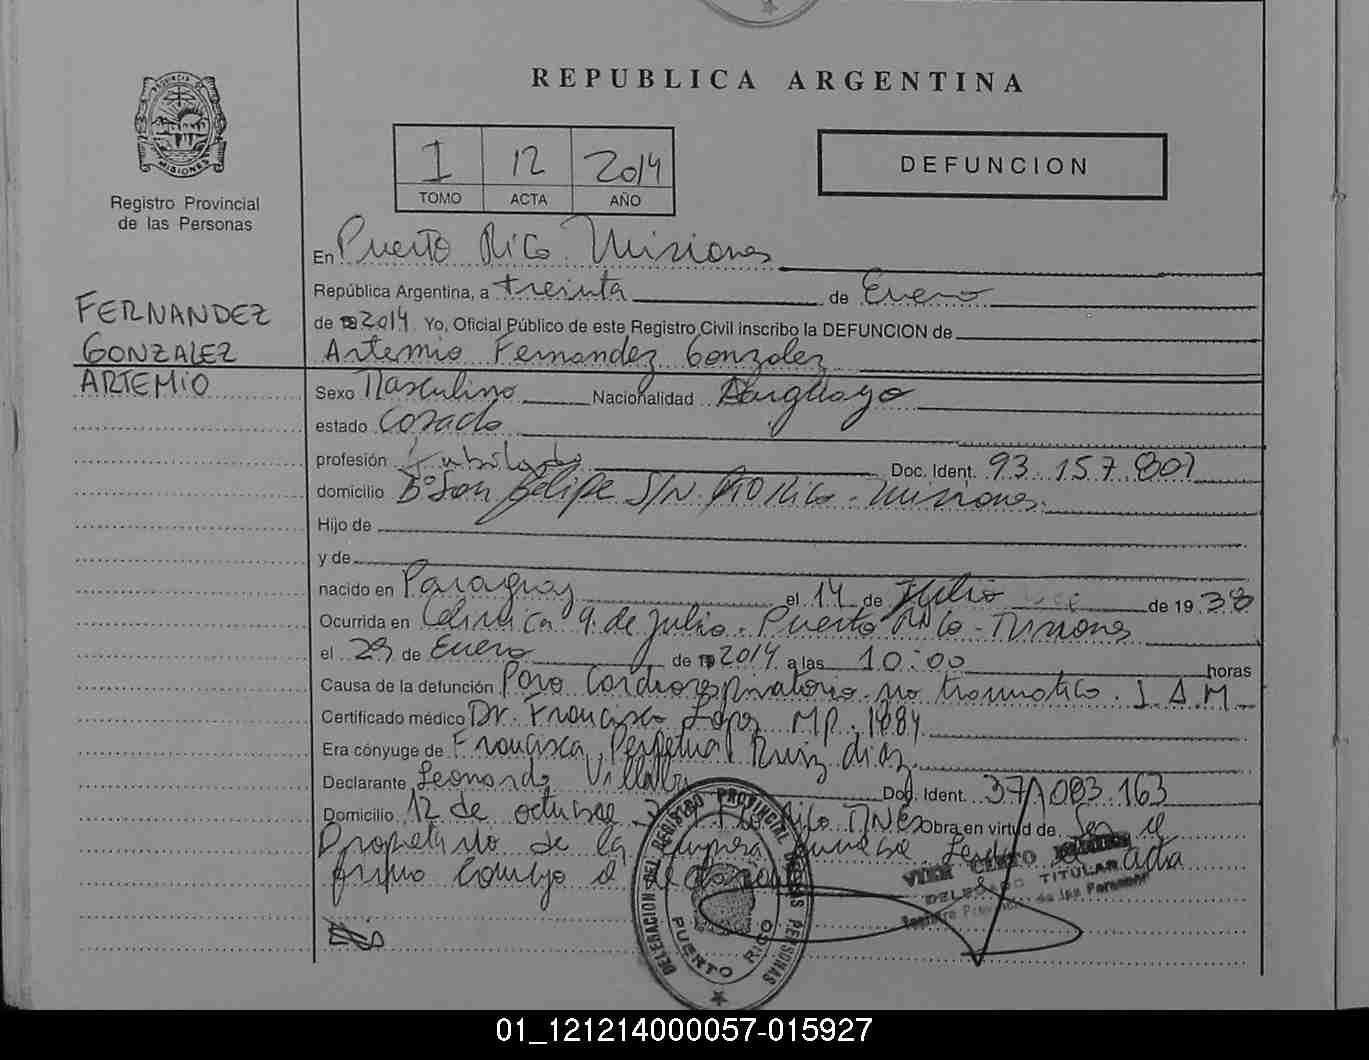 REPUBLICA ARGENTINA
PROVINCIA DE MISIONES
Registro Provincial
de las Personas
I 12 2014
TOMO ACTA AÑO
DEFUNCION
En Puerto Rico Misiones
República Argentina, a treinta de Enero
de 2014 Yo, Oficial Público de este Registro Civil inscribo la DEFUNCION de
FERNANDEZ
GONZALEZ
ARTEMIO
Artemio Fernandez Gonzalez
Sexo Masculino Nacionalidad Paraguayo
estado Casado
profesión Jubilado Doc. Ident. 93.157.802
domicilio Bº San Felipe S/N Pto Rico - Misiones.
Hijo de
y de
nacido en Paraguay el 14 de Julio de 19 38
Ocurrida en Clinica 9 de Julio - Puerto Rico - Misiones
el 29 de Enero de 2014 a las 10:00 horas
Causa de la defunción Paro Cardiorespiratorio no traumatico. I.A.M.
Certificado médico Dr. Francisco Lopez MP. 1884
Era cónyuge de Francisca Perpetua Ruiz diaz
Declarante Leonardo Villalba Doc. Ident. 37.083.163
Domicilio 12 de octubre Pto Rico MNES Obra en virtud de Ser el
Propietario de la Empresa funebre acta
firma conmigo el declarante
DELEGACION DEL REGISTRO PROVINCIAL DE LAS PERSONAS
PUERTO RICO
TITULAR
Registro Provincial de las Personas
01_121214000057-015927